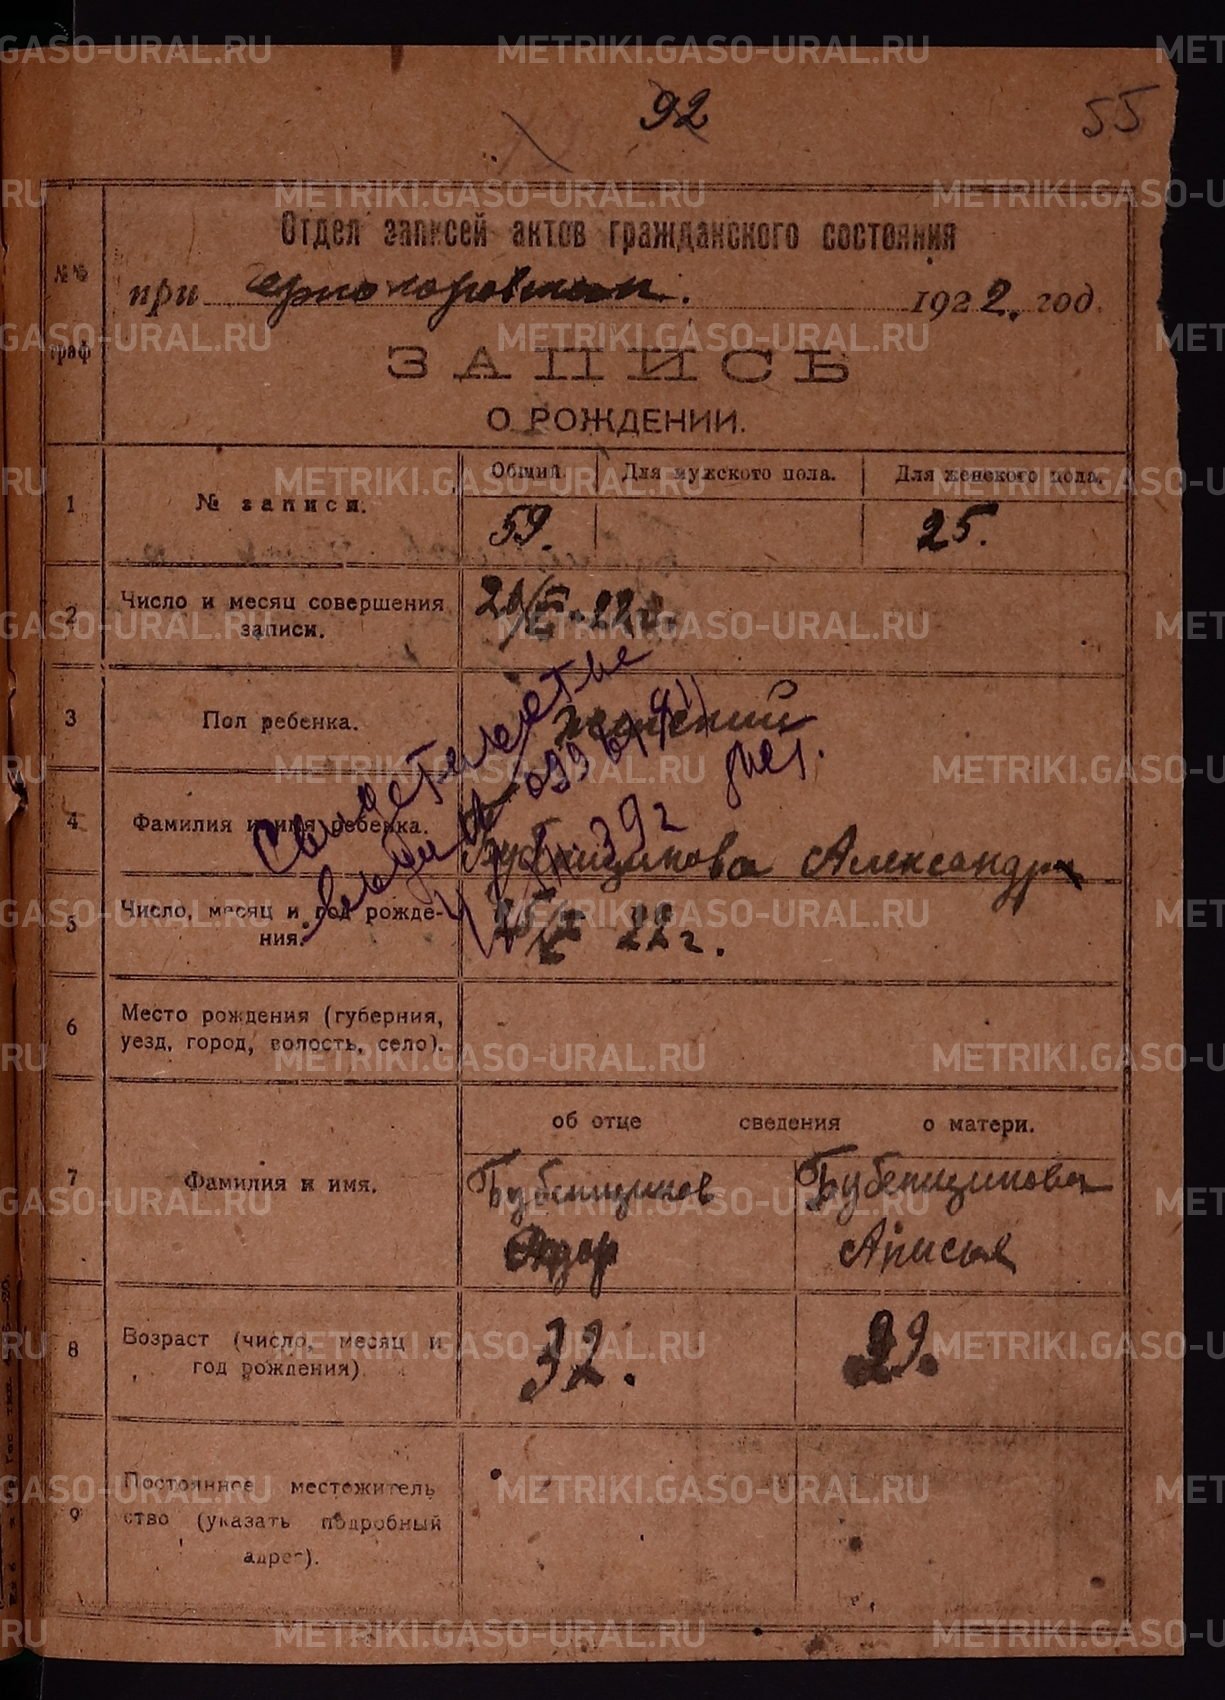 92
55
Отдел записей актов гражданского состояния
№№ граф
при 1922. год.
ЗАПИСЬ
О РОЖДЕНИИ.
Общий Для мужского пола. Для женского пола.
1 № записи. 59. 25.
2 Число и месяц совершения
записи.
22г.
3 Пол ребенка. женский
Свидетельство
4 Фамилия и имя ребенка. Бубенщикова Александра
39г
5 Число, месяц и год рожде-
ния. 22г.
6 Место рождения (губерния,
уезд, город, волость, село).
об отце сведения о матери.
7 Фамилия и имя. Бубенщиков Бубенщикова
Анисья
8 Возраст (число, месяц и
год рождения) 32. 29.
9 Постоянное местожитель
ство (указать подробный
адрес).
METRIKI.GASO-URAL.RU